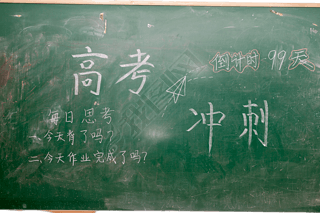 高考
倒计时:99天
冲刺
每日思考
一.今天有了吗?
二.今天作业完成了吗?